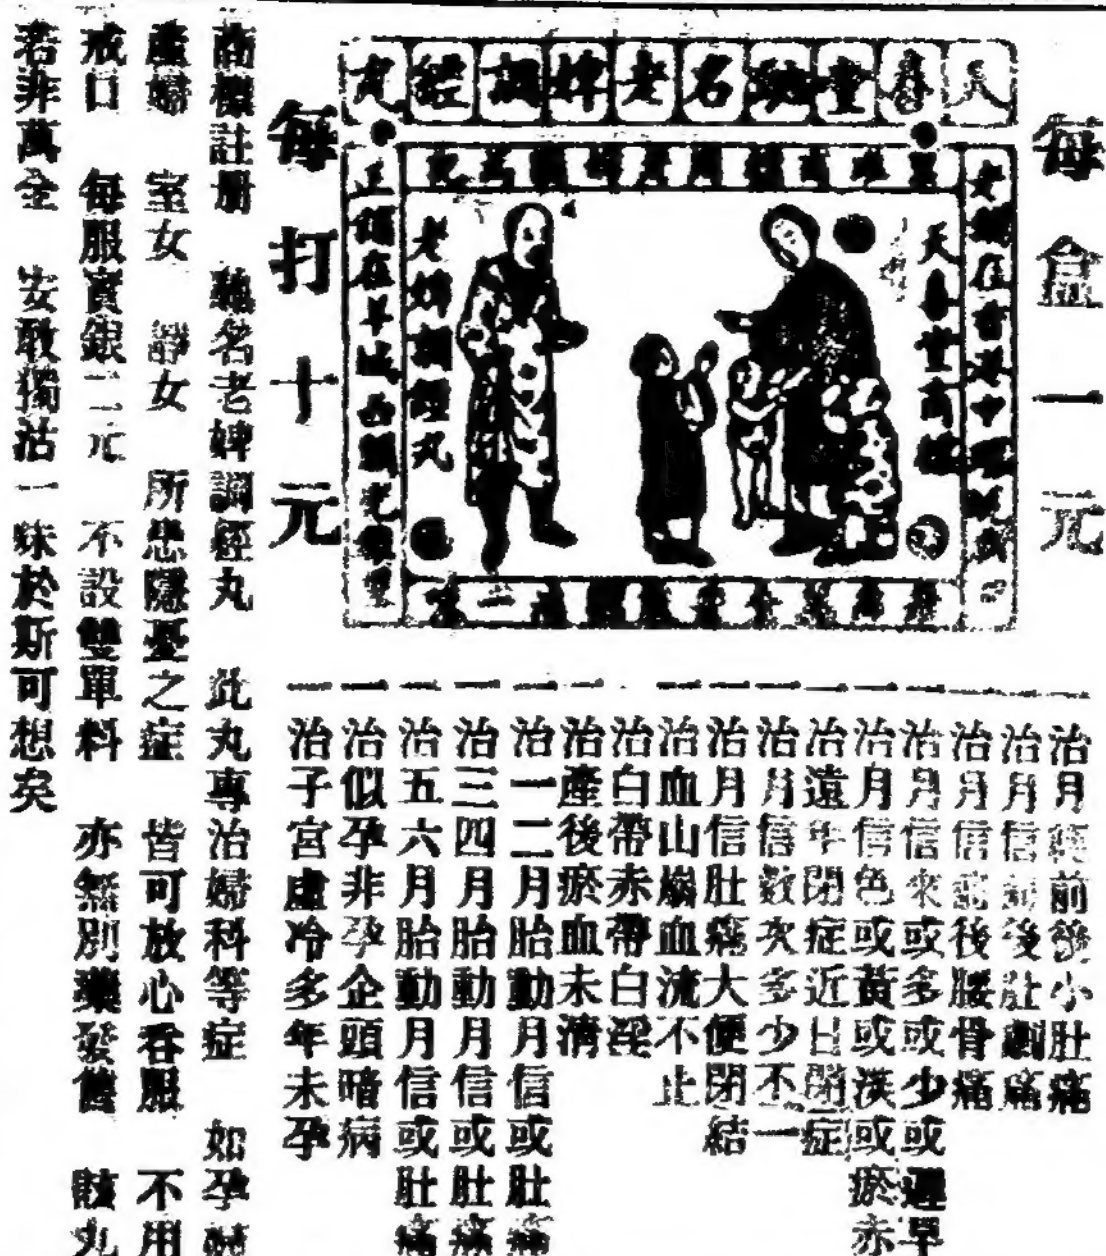 每盒一元
天喜堂馳名老婢調經丸
天喜堂商標
老婢調經丸
每打十元
一治月經前後小肚痛
一治月信 後肚 痛
一治月信 後腰骨痛
一治月信來或多或少或遲早
一治月信色或黃或淡或瘀赤
一治遠年閉症近日閉症
一治月信數次多少不一
一治月信肚痛大便閉結
一治血山崩血流不止
治白帶赤帶白淫
一治產後瘀血未清
一治一二月胎動月信或肚痛
一治三四月胎動月信或肚痛
一治五六月胎動月信或肚痛
一治似孕非孕企頭暗病
一治子宮虛冷多年未孕
商標註册 馳名老婢調經丸 此丸專治婦科等症 如孕婦
產婦 室女 靜女 所患隱憂之症 皆可放心吞服 不用
戒口 每服實銀一元 不設雙單料 亦無別藥發售 該丸
若非萬全 安敢獨沽一味於斯可想矣